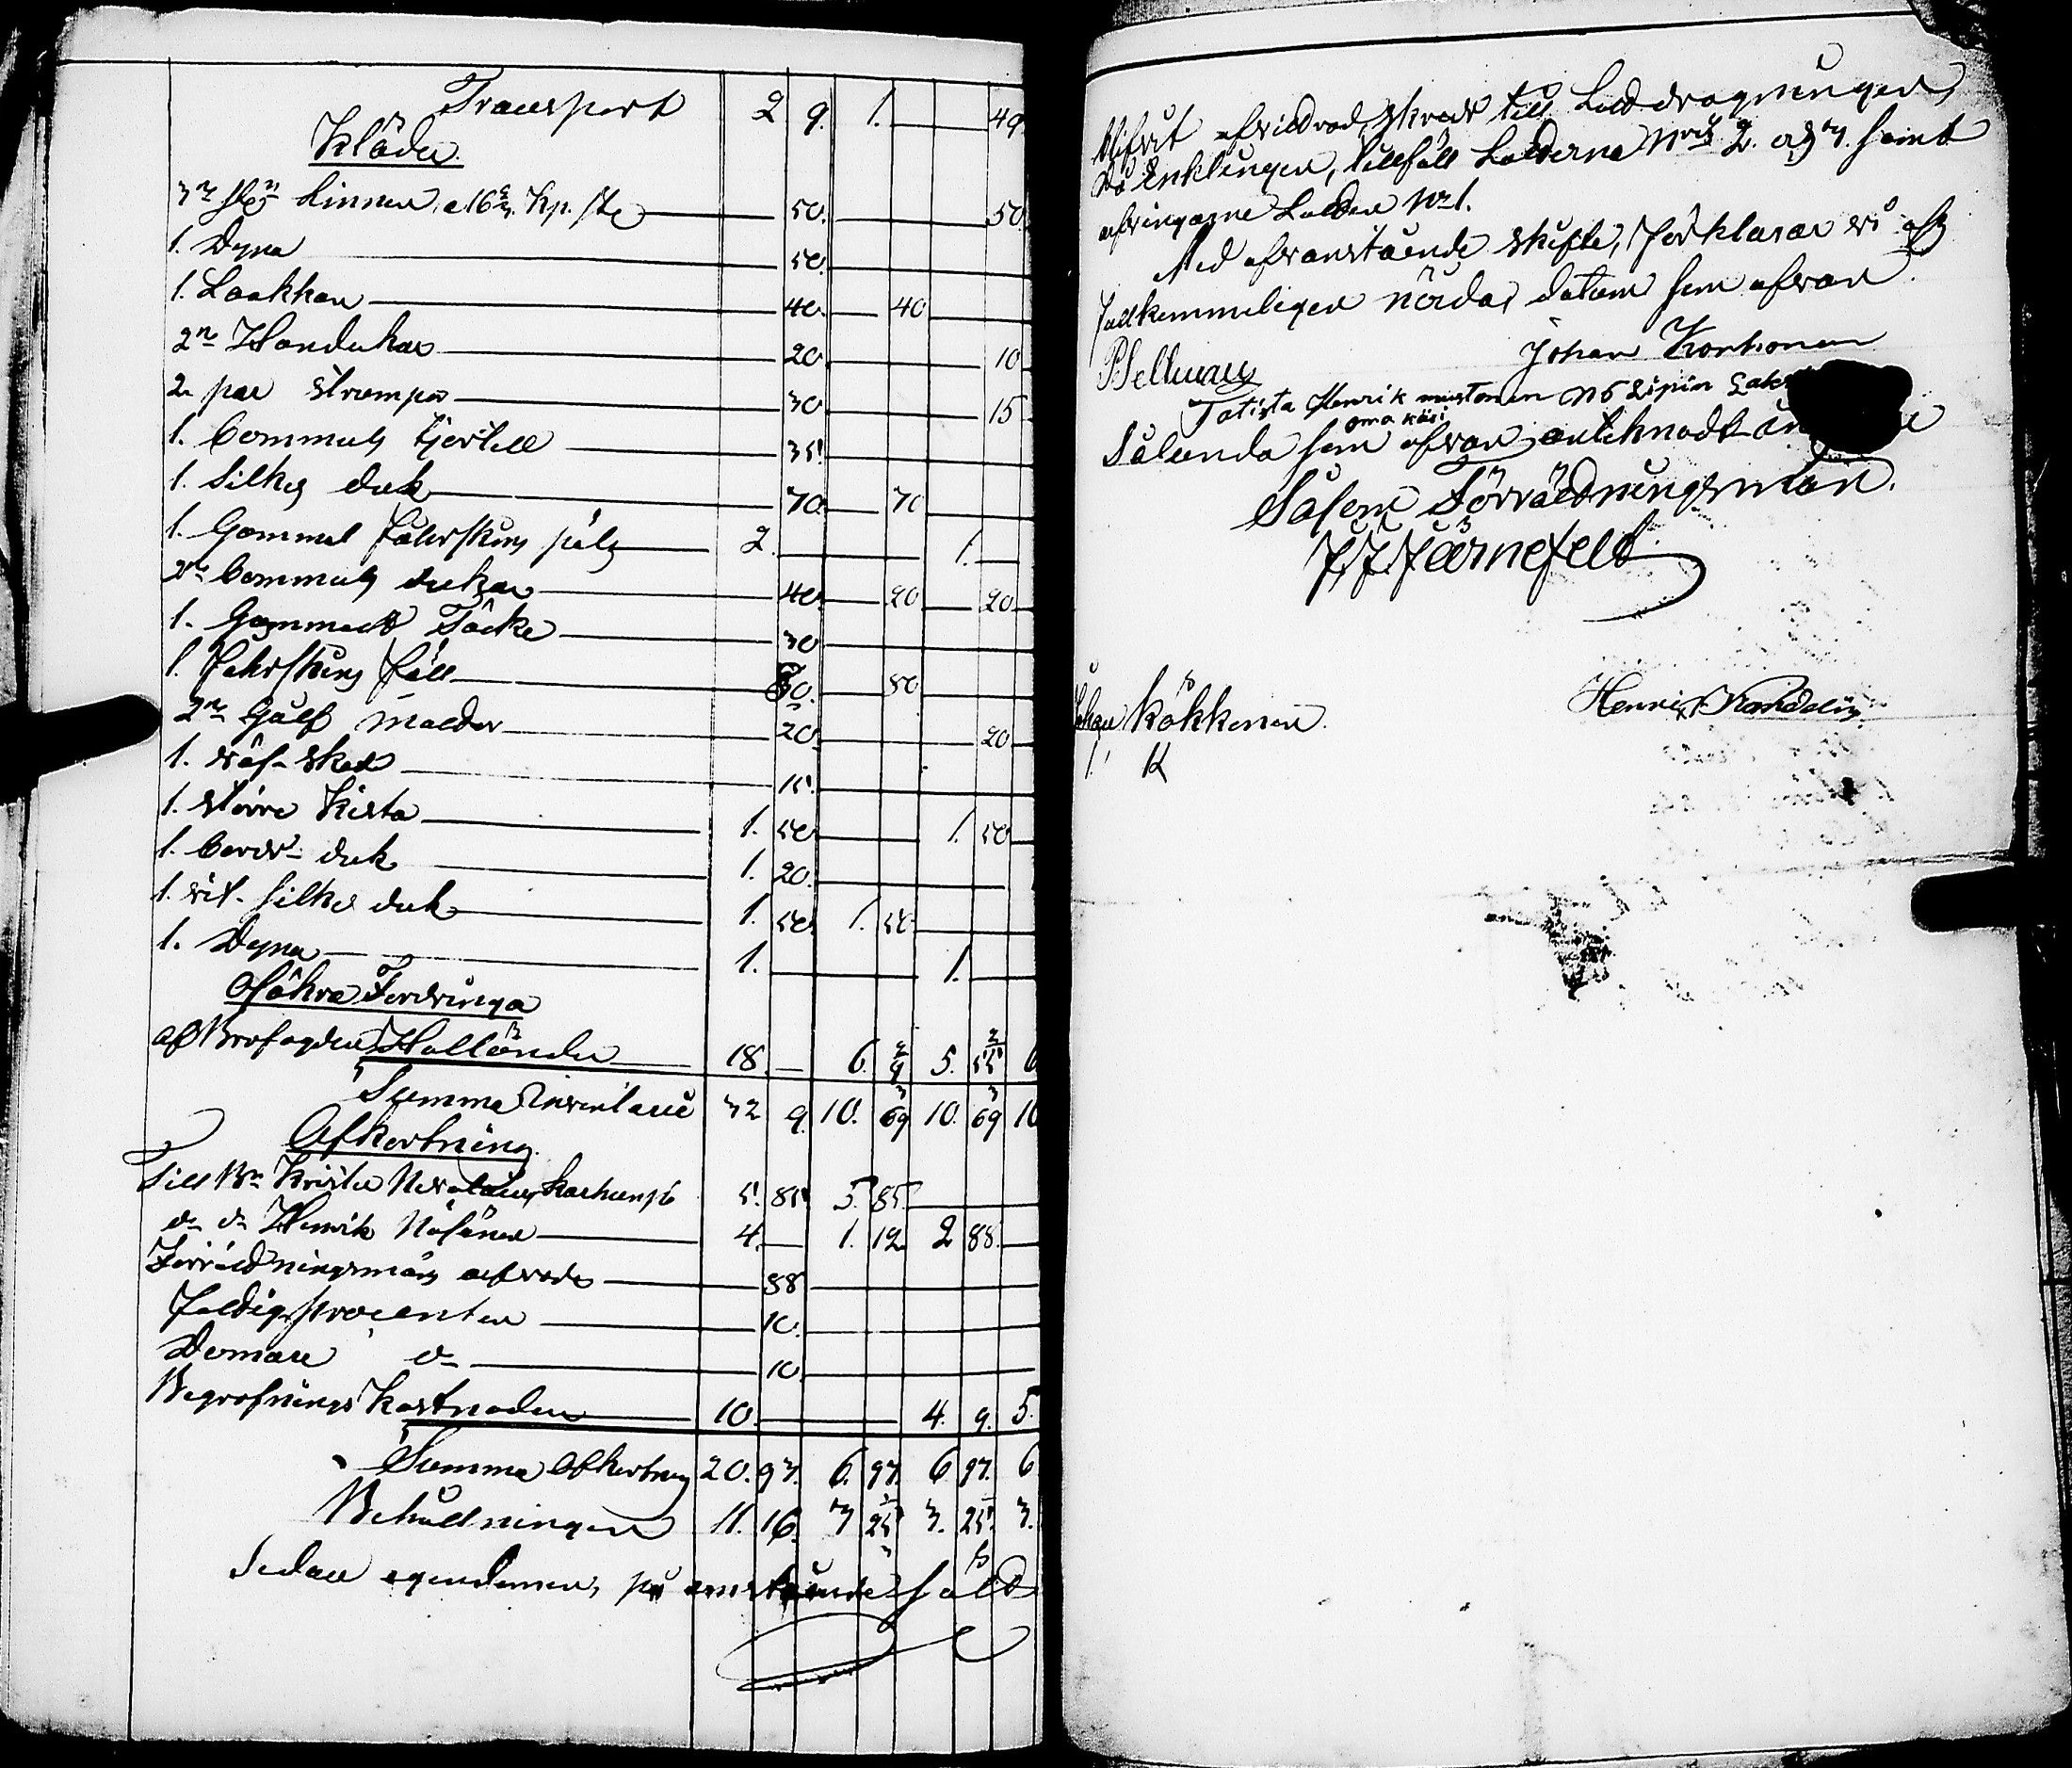 Transport 2 9. 1. — 49
Kläder.
3 st. Linnen, a 16 2/3 kp. st. 50. 50
1. Dyna 50.
1. Laakkan 40. 40
2 Handukar 20 10
2 par Strumpor 30 15
1. Bommuls Kjortell 35.
1. Silkes duk 70. 70
1. Gammal fåhrskins päls 2. 1.
2 Bommuls dukar 40 20 20
1. Gammalt Täcke 30
1. Fåhrskins fäll 50. 50
2 Gålf mattor 20. 20
1. väf-sked 15.
1. större Kista 1. 50 1. 50
1. Bords duk 1. 20.
1. vit silkes duk 1. 50 1. 50
1. Dyna 1. 1.
Osäkra Fordringar
af Brofogden Holländer 18. — 6. 5. 6
Summa Inventarie 32 9. 10. 69 10. 69 10
Afkortning.
Till Bn Krister 5. 85 5. 85.
do do Henrik Näsänen 4. — 1. 12 2 88.
Förrättningsman arfvode 88
Fattigprocenten 10.
Domare do 10.
Begrafnings Kostnaden 10. 4. 9. 5.
Summa Afkortning 20. 93. 6. 97. 6 97. 6
Behållningen 11. 16. 3 25 3. 25. 3.
Sedan egendomen, på omstående sätt
blifvit skreds till Lottdragningen,
då Enklingen, tillföll Lotterna Nris 2. och 3. samt
arfvingarne Lotten No 1.
Med ofvanstående skifte, förklarar vi oss
fullkommeligen nöjda, datum som ofvan
PSellman Johan Korhonen
Totista Henrik mustonen No 5 Lipin
oma käsi
Sålunda som ofvan antecknadt
Såsom Förrättningsman.
J. F. Järnefelt
Johan Kökkonen. Henrik
I. K